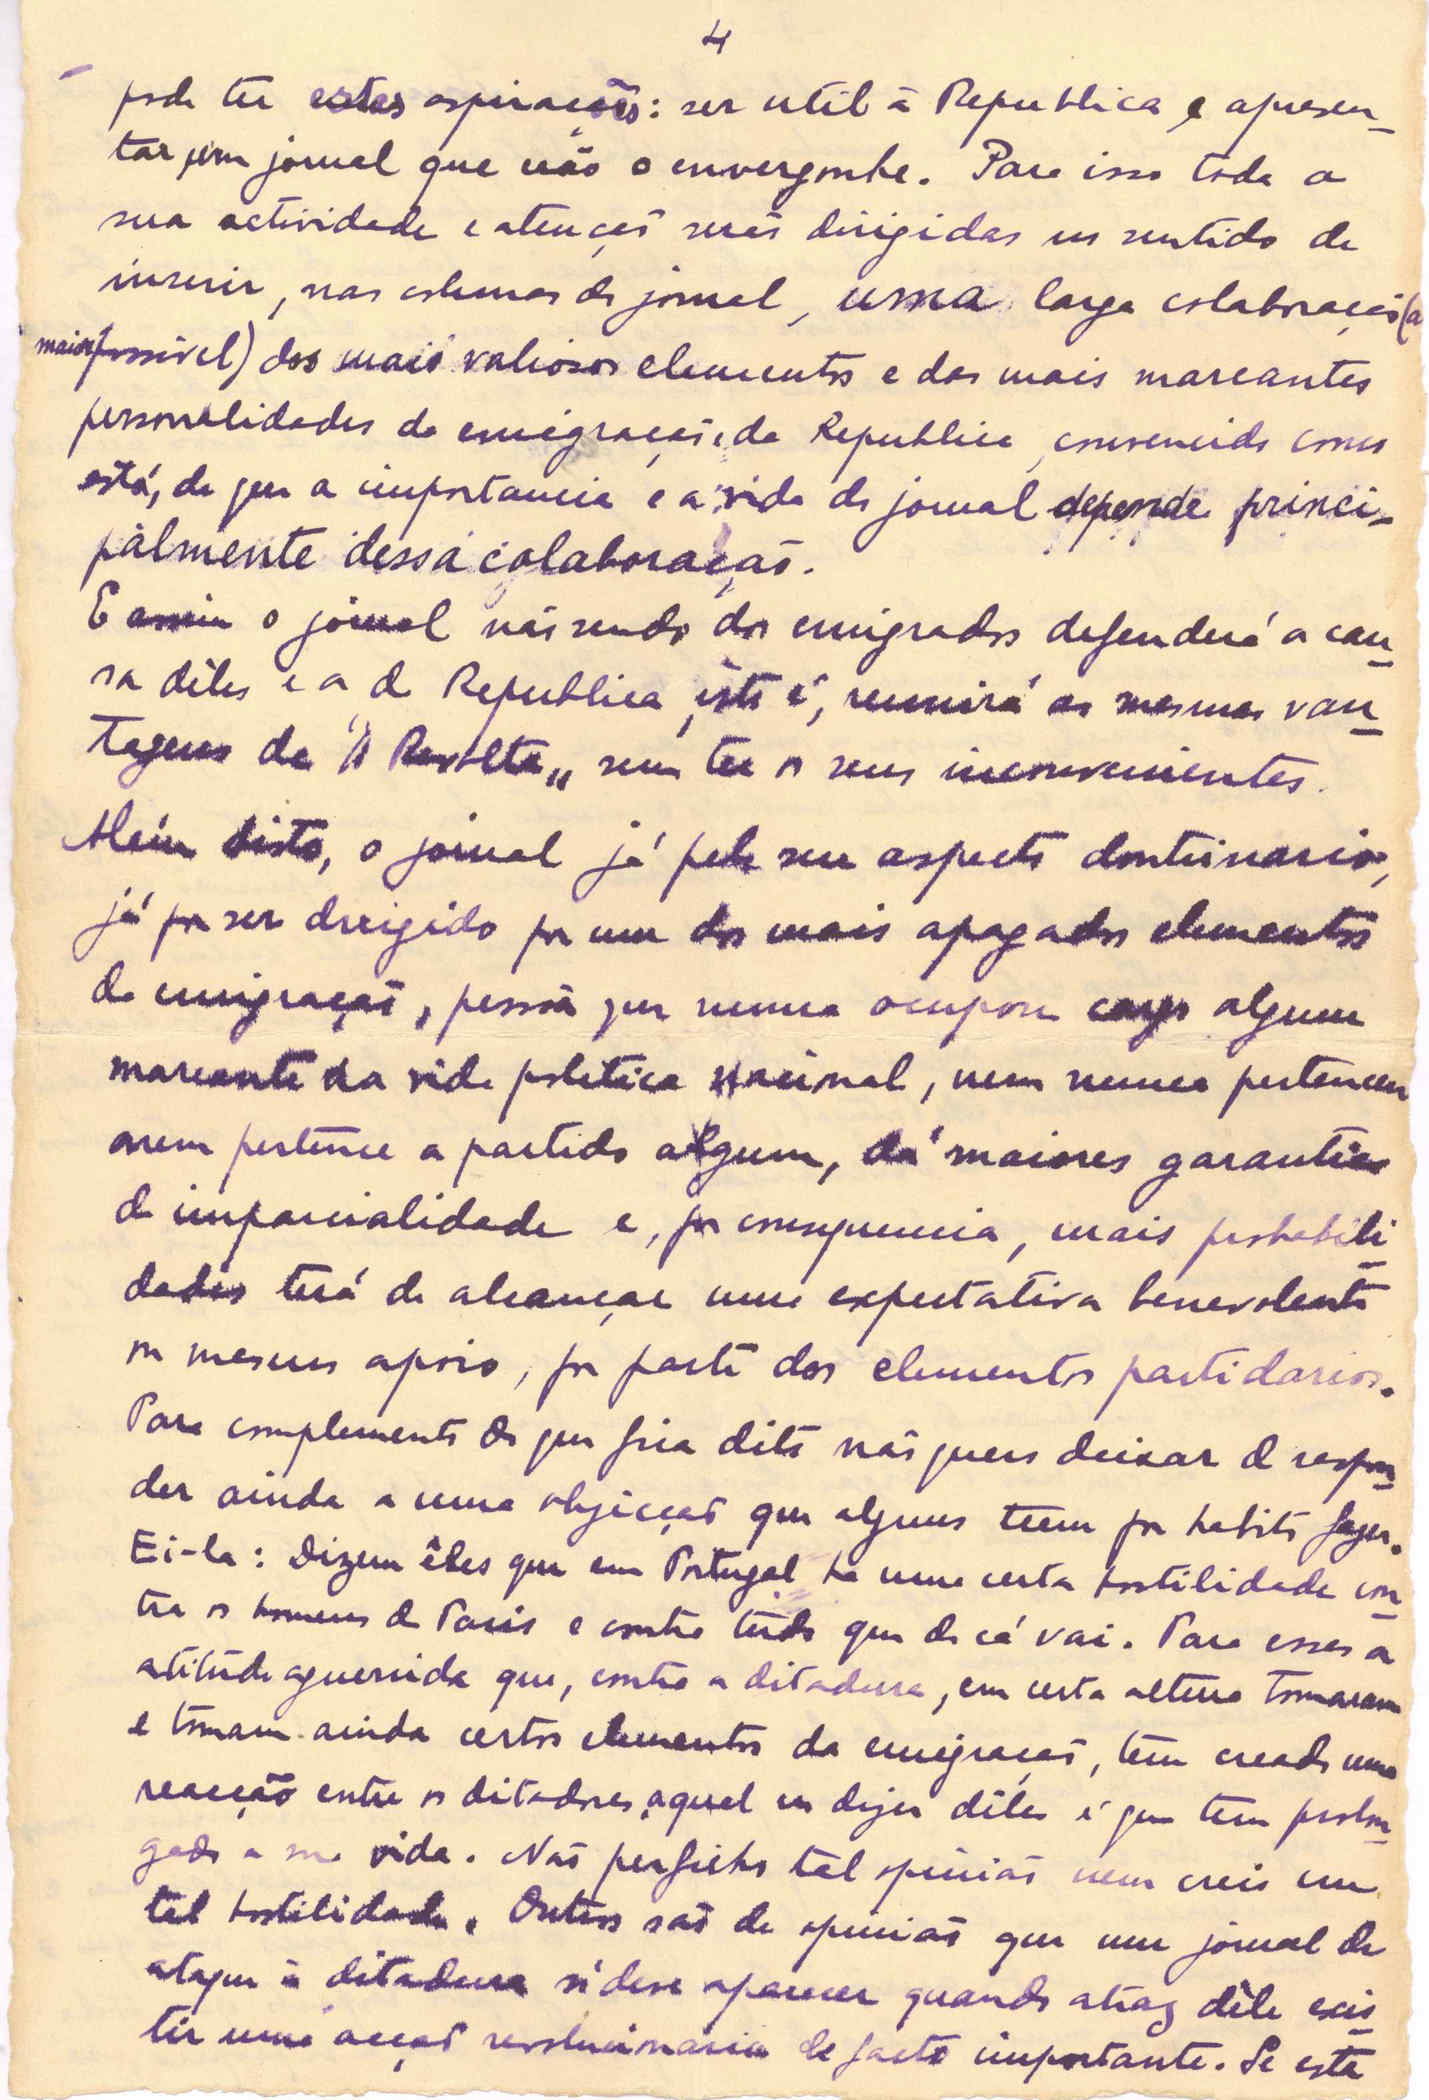 4
pode ter estas aspirações: ser util á Republica e apresen-
tar um jornal que não o envergonhe. Para isso toda a
sua actividade e atenção serão dirigidas no sentido de
inserir, nas colunas do jornal, uma larga colaboração (a
maior possivel) dos mais valiosos elementos e das mais marcantes
personalidades da emigração e da Republica, convencido como
está, de que a importancia e a vida do jornal depende princi-
palmente dessa colaboração.
E assim o jornal não sendo dos emigrados defenderá a cau-
sa dêles e a da Republica, isto é, reunirá as mesmas van-
tagens da "A Revolta" sem ter os seus inconvenientes.
Além disto, o jornal já pelo seu aspecto doutrinario,
já por ser dirigido por um dos mais apagados elementos
da emigração, pessôa que nunca ocupou cargo algum
marcante na vida politica nacional, nem nunca pertenceu
nem pertence a partido algum, dá maiores garantias
de imparcialidade e, por consequencia, mais probabili-
dades terá de alcançar uma expectativa benevolente
ou mesmo apoio, por parte dos elementos partidarios.
Para complemento do que fica dito não quero deixar de respon-
der ainda a uma objecção que alguns teem por habito fazer.
Ei-la: Dizem êles que em Portugal ha uma certa hostilidade con-
tra os homens de Paris e contra tudo que de cá vai. Para esses a
atitude aguerrida que, contra a ditadura, em certa altura tomaram
e tomam ainda certos elementos da emigração, tem creado uma
reacção entre os ditadores, a qual no dizer dêles é que tem prolon-
gado a sua vida. Não perfilho tal opinião nem creio em
tal hostilidade. Outros são de opinião que um jornal de
ataque á ditadura só deve aparecer quando atraz dêle exis-
tir uma acção revolucionaria de facto importante. Se esta